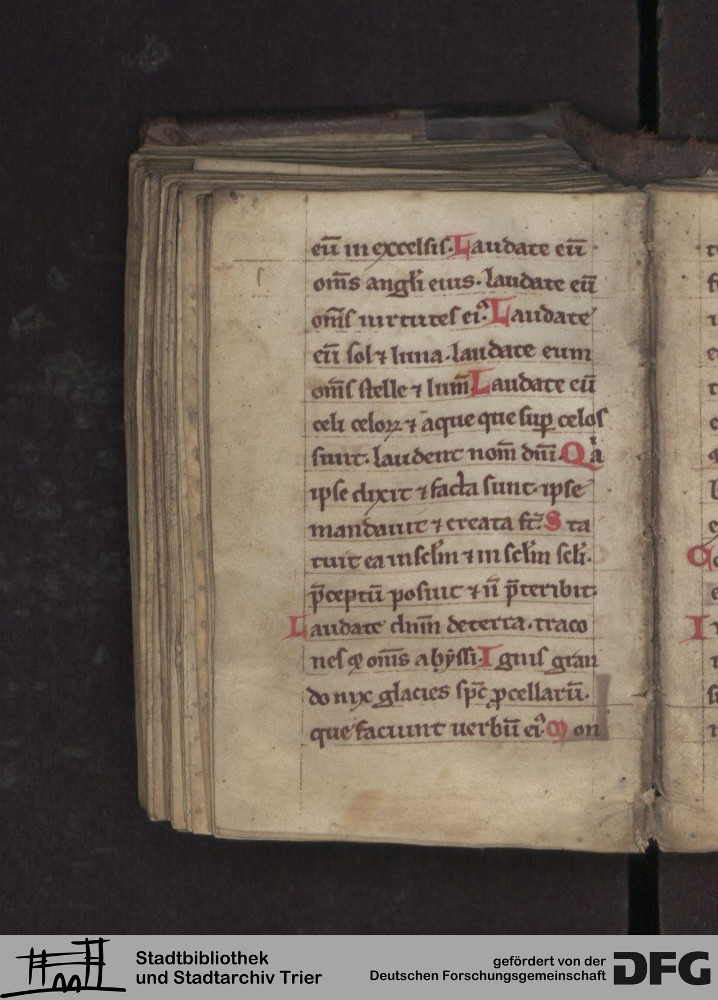 eū in excelsis. Laudate eū
om̅s angl̅i eius. laudate eū
om̅s uirtutes eiꝰ. Laudate
eū sol ⁊ luna. laudate eum
om̅s stelle ⁊ lum̅. Laudate eū
celi celoꝝ ⁊ aque que suꝑ celos
sunt. laudent nom̅ dn̅i. Qͥa
ipse dixit ⁊ facta sunt. ipse
mandauit ⁊ creata st̅. Sta
tuit ea in scl̅m ⁊ in scl̅m scl̅i.
p̅ceptū posuit ⁊ n̅ p̅teribit.
Laudate dn̅m de terra. traco
nes ⁊ om̅s abyssi. Ignis gran
do nix glacies sp̅c ꝓcellarū.
que faciunt uerbū eiꝰ. Mon
Stadtbibliothek
und Stadtarchiv Trier
gefördert von der
Deutschen Forschungsgemeinschaft
DFG